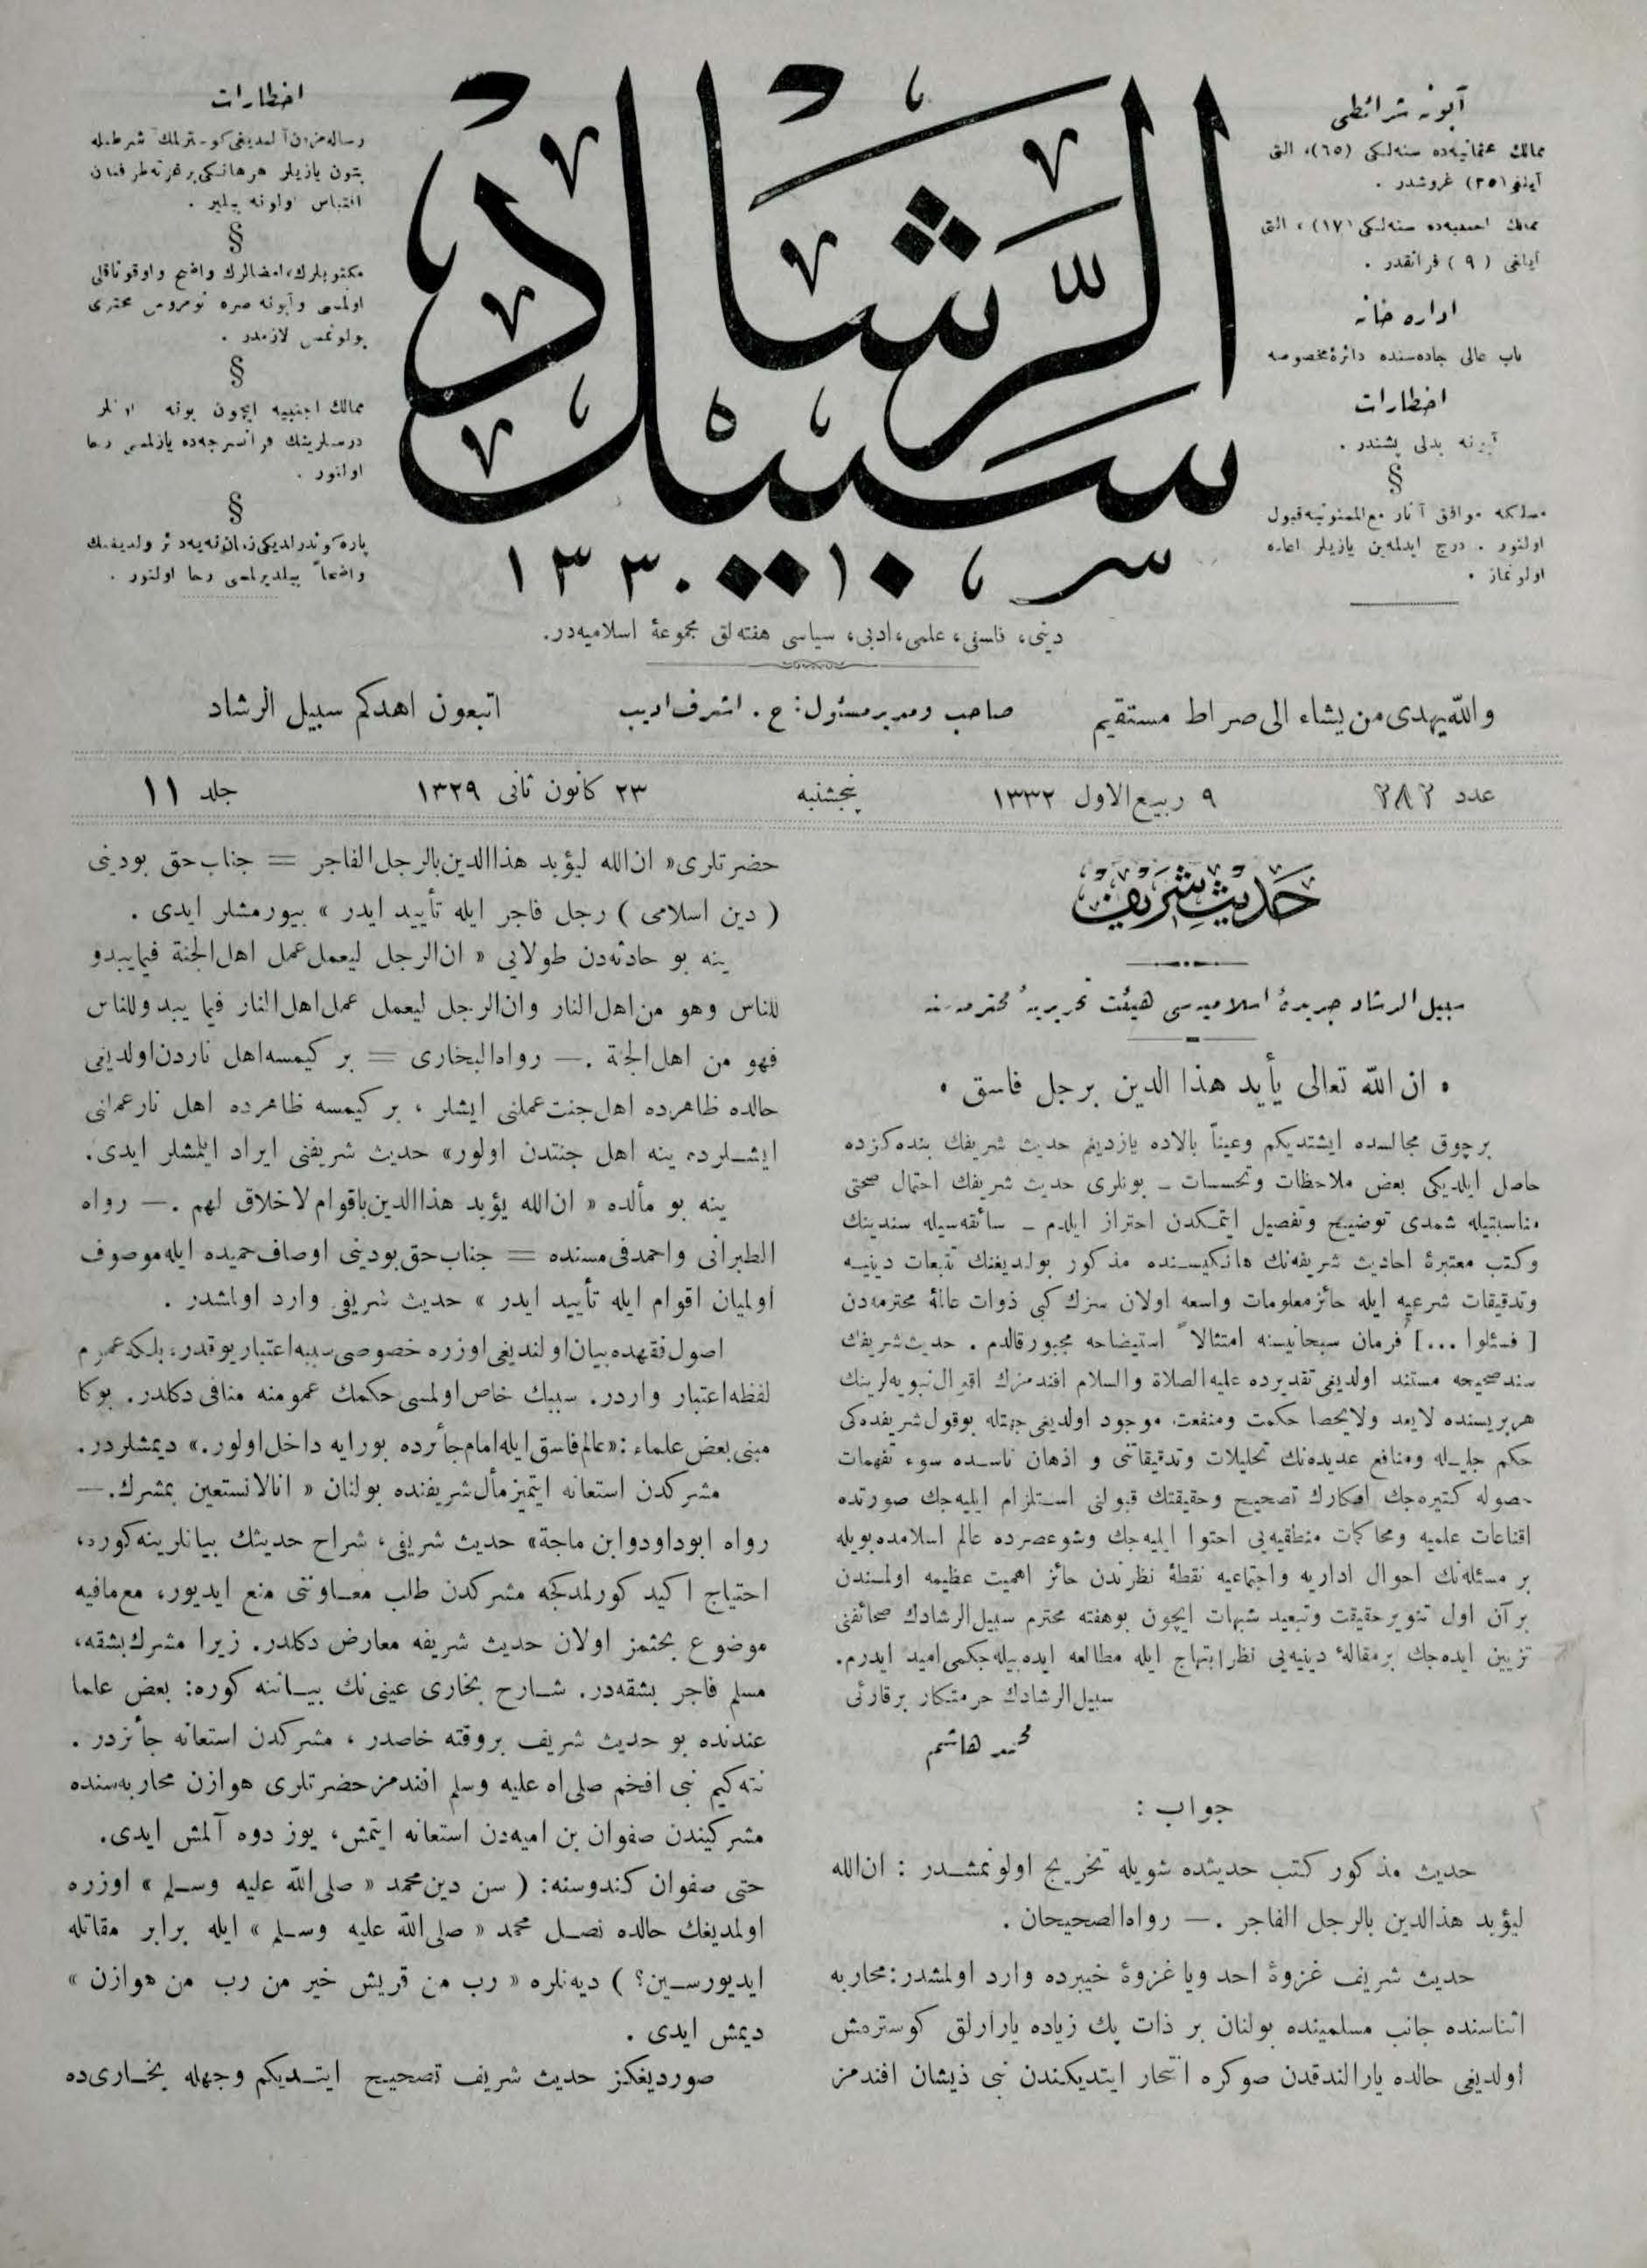 آبونه شرائطی
ممالك عثمانیه‌ده سنه‌لكی (٦٥)، التی
آیلغی (٣٥) غروشدر .
ممالك اجنبیه‌ده سنه‌لكی (١٧) ، التی
آیلغی ( ٩ ) فرانقدر .
اداره خانه
باب عالی جاده‌سنده دائرۀ مخصوصه
اخطارات
آبونه بدلی پشیندر .
§
مسلكه موافق آثار مع الممنونیه قبول
اولنور . درج ایدلمه‌ین یازیلر اعاده
اولونماز .
سبیل الرشاد
١٣٣٠
اخطارات
رساله‌مزدن آلندیغی كوسترلمك شرطیله
بتون یازیلر هر هانكی بر غزته طرفندن
اقتباس اولونه بیلیر .
§
مكتوبلرك، امضالرك واضح و اوقوناقلی
اولمسی و آبونه صره نومروسی محتوی
بولونمسی لازمدر .
§
ممالك اجنبیه ایچون بونه
آدرسلرینك فرانسزجه‌ده یازلمسی رجا
اولنور .
§
پاره كوندرلدیكی زمان نه‌یه دائر ولدیغنك
واضحاً بیلدیرلمسی رجا اولنور .
دینی، فلسفی، علمی، ادبی، سیاسی هفته‌لق مجموعۀ اسلامیه‌در.
والله یهدی من یشاء الی صراط مستقیم
صاحب و مدیر مسئول: ح . اشرف ادیب
اتبعون اهدكم سبیل الرشاد
عدد ٢٨٢
٩ ربیع الاول ١٣٣٢
پنجشنبه
٢٣ كانون ثانی ١٣٢٩
جلد ١١
حدیث شریف
سبیل الرشاد جریدۀ اسلامیه‌سی هیئت تحریریۀ محترمه‌سنه
• ان الله تعالی یأید هذا الدین برجل فاسق •
بر چوق مجالسده ایشتدیكم وعیناً بالاده یازدیغم حدیث شریفك بنده‌كزده
حاصل ایلدیكی بعض ملاحظات وتحسسات ـ بونلری حدیث شریفك احتمال صحتی
مناسبتیله شمدی توضیح وتفصیل ایتمكدن احتراز ایلدم ـ سائقه‌سیله سندینك
وكتب معتبرۀ احادیث شریفه‌نك هانكیسنده مذكور بولدیغنك تتبعات دینیه
وتدقیقات شرعیه ایله حائز معلومات واسعه اولان سزك كبی ذوات عالمۀ محترمه‌دن
[ فسئلوا ...] فرمان سبحانیسنه امتثالاً استیضاحه مجبور قالدم . حدیث شریفك
سند صحیحه مستند اولدیغی تقدیرده علیه الصلاة والسلام افندمزك اقوال نبویه‌لرینك
هر بریسنده لایعد ولایحصا حكمت ومنفعت موجود اولدیغی جهتله بو قول شریفده‌كی
حكم جلیله ومنافع عدیده‌نك تحلیلات وتدقیقاتنی و اذهان ناسده سوء تفهمات
حصوله كتیره‌جك افكارك تصحیح وحقیقتك قبولنی استلزام ایلیه‌جك صورتده
اقناعات علمیه ومحاكمات منطقیه‌یی احتوا ایلیه‌جك وشو عصرده عالم اسلامده بویله
بر مسئله‌نك احوال اداریه واجتماعیه نقطۀ نظرندن حائز اهمیت عظیمه اولمسندن
بر آن اول تنویر حقیقت وتبعید شبهات ایچون بو هفته محترم سبیل الرشادك صحائفنی
تزیین ایده‌جك بر مقالۀ دینیه‌یی نظر ابتهاج ایله مطالعه ایده بیله‌جكمی امید ایدرم.
سبیل الرشادك حرمتكار بر قارئی
محمد هاشم
جواب :
حدیث مذكور كتب حدیثده شویله تخریج اولونمشدر : ان الله
لیؤید هذالدین بالرجل الفاجر . — رواه الصحیحان .
حدیث شریف غزوۀ احد ویا غزوۀ خیبرده وارد اولمشدر: محاربه
اثناسنده جانب مسلمینده بولنان بر ذات پك زیاده یارارلق كوسترمش
اولدیغی حالده یارالندقدن صوكره انتحار ایتدیكندن نبی ذیشان افندمز
حضرتلری « ان الله لیؤید هذا الدین بالرجل الفاجر = جناب حق بو دینی
( دین اسلامی ) رجل فاجر ایله تأیید ایدر » بیورمشلر ایدی .
ینه بو حادثه‌دن طولایی « ان الرجل لیعمل عمل اهل الجنة فیما یبدو
للناس وهو من اهل النار وان الرجل لیعمل عمل اهل النار فیما یبدو للناس
فهو من اهل الجنة . — رواه البخاری = بر كیمسه اهل ناردن اولدیغی
حالده ظاهرده اهل جنت عملنی ایشلر ، بر كیمسه ظاهرده اهل نار عملنی
ایشلرده ینه اهل جنتدن اولور» حدیث شریفنی ایراد ایلمشلر ایدی.
ینه بو مآلده « ان الله یؤید هذا الدین باقوام لاخلاق لهم . — رواه
الطبرانی واحمد فی مسنده = جناب حق بو دینی اوصاف حمیده ایله موصوف
اولمیان اقوام ایله تأیید ایدر » حدیث شریفی وارد اولمشدر .
اصول فقهده بیان اولندیغی اوزره خصوصی سببه اعتبار یوقدر، بلكه عموم
لفظه اعتبار واردر. سببك خاص اولمسی حكمك عمومنه منافی دكلدر. بوكا
مبنی بعض علماء : «عالم فاسق ایله امام جائرده بورایه داخل اولور.» دیمشلردر.
مشركدن استعانه ایتمیز مآل شریفنده بولنان « انا لانستعین بمشرك. —
رواه ابوداود وابن ماجة» حدیث شریفی، شراح حدیثك بیانلرینه كوره،
احتیاج اكید كورلمدكجه مشركدن طلب معاونتی منع ایدیور، مع مافیه
موضوع بحثمز اولان حدیث شریفه معارض دكلدر. زیرا مشرك بشقه،
مسلم فاجر بشقه‌در. شارح بخاری عینی‌نك بیاننه كوره: بعض علما
عندنده بو حدیث شریف بر وقته خاصدر ، مشركدن استعانه جائزدر .
نته‌كیم نبی افخم صلی الله علیه وسلم افندمز حضرتلری هوازن محاربه‌سنده
مشركیندن صفوان بن امیه‌دن استعانه ایتمش، یوز دوه آلمش ایدی.
حتی صفوان كندوسنه: ( سن دین محمد « صلی الله علیه وسلم » اوزره
اولمدیغك حالده نصل محمد « صلی الله علیه وسلم » ایله برابر مقاتله
ایدیورسین؟ ) دیه‌نلره « رب من قریش خیر من رب من هوازن »
دیمش ایدی .
صوردیغكز حدیث شریف تصحیح ایتدیكم وجهله بخاری‌ده